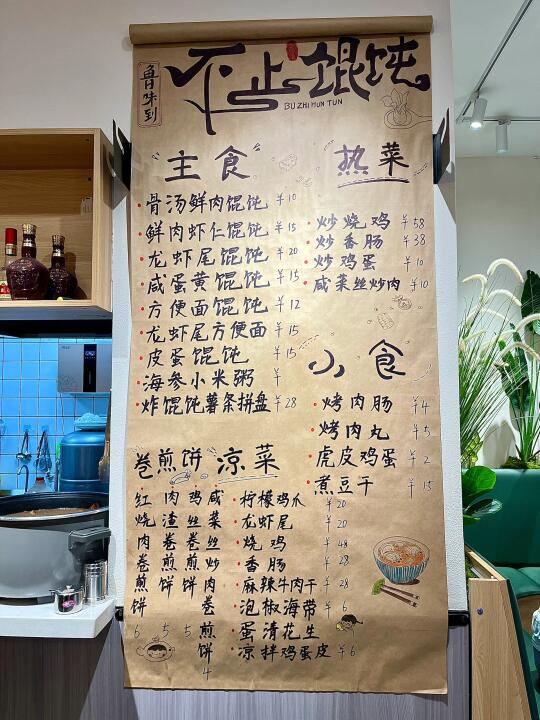 鲁味到
不止馄饨
BU ZHI HUN TUN
"主食"
骨汤鲜肉馄饨 ¥10
鲜肉虾仁馄饨 ¥15
龙虾尾馄饨 ¥20
咸蛋黄馄饨 ¥15
方便面馄饨 ¥12
龙虾尾方便面 ¥15
皮蛋馄饨 ¥15
海参小米粥 ¥
炸馄饨薯条拼盘 ¥28
热菜
炒烧鸡 ¥58
炒香肠 ¥38
炒鸡蛋 ¥10
咸菜丝炒肉 ¥10
小食
烤肉肠 ¥4
烤肉丸 ¥5
虎皮鸡蛋 ¥2
煮豆干 ¥15
卷煎饼
红烧肉卷煎饼 6
肉渣卷煎饼 5
鸡丝卷煎饼 5
咸菜丝炒肉卷煎饼 4
凉菜
柠檬鸡爪 ¥20
龙虾尾 ¥20
烧鸡 ¥48
香肠 ¥28
麻辣牛肉干 ¥28
泡椒海带 ¥6
蛋清花生
凉拌鸡蛋皮 ¥6